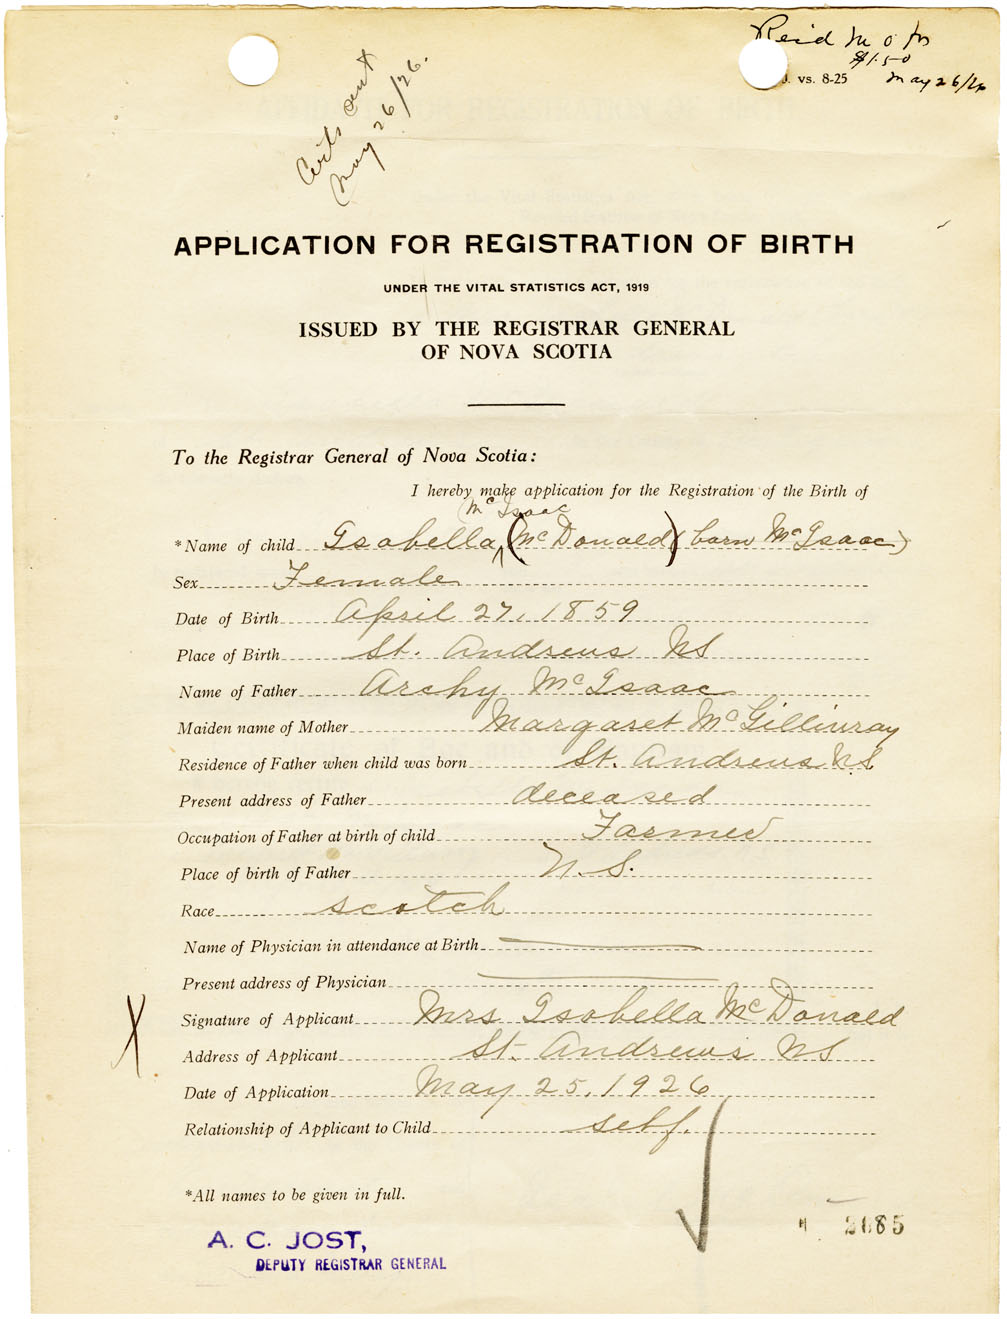 Reid M O for
$1.50
. vs. 8-25 May 26/26
Certs sent
May 26/26.
APPLICATION FOR REGISTRATION OF BIRTH
UNDER THE VITAL STATISTICS ACT, 1919
ISSUED BY THE REGISTRAR GENERAL
OF NOVA SCOTIA
To the Registrar General of Nova Scotia:
I hereby make application for the Registration of the Birth of
McIsaac
*Name of child Isabella (McDonald) (born McIsaac)
Sex Female
Date of Birth April 27, 1859
Place of Birth St. Andrews NS
Name of Father Archy McIsaac
Maiden name of Mother Margaret McGillivray
Residence of Father when child was born St. Andrews N.S
Present address of Father deceased
Occupation of Father at birth of child Farmer
Place of birth of Father N.S.
Race scotch
Name of Physician in attendance at Birth
Present address of Physician
X
Signature of Applicant Mrs Isabella McDonald
Address of Applicant St. Andrews NS
Date of Application May 25, 1926
Relationship of Applicant to Child self.
*All names to be given in full.
A. C. JOST,
DEPUTY REGISTRAR GENERAL
2685